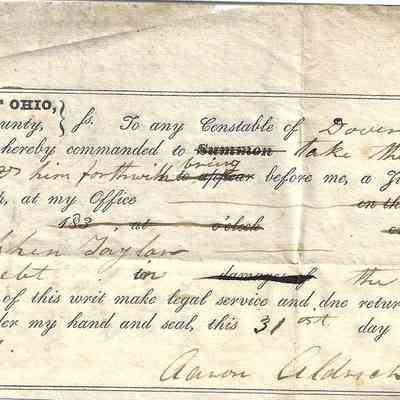 OHIO,
unty, } ss. To any Constable of Dover
hereby commanded to Summon take the
him forthwith to appear bring before me, a
at my Office on th
183 , at o'clock
phen Taylor
ebt in damages of the
of this writ make legal service and due retur
er my hand and seal, this 31st. day
Aaron Aldrich